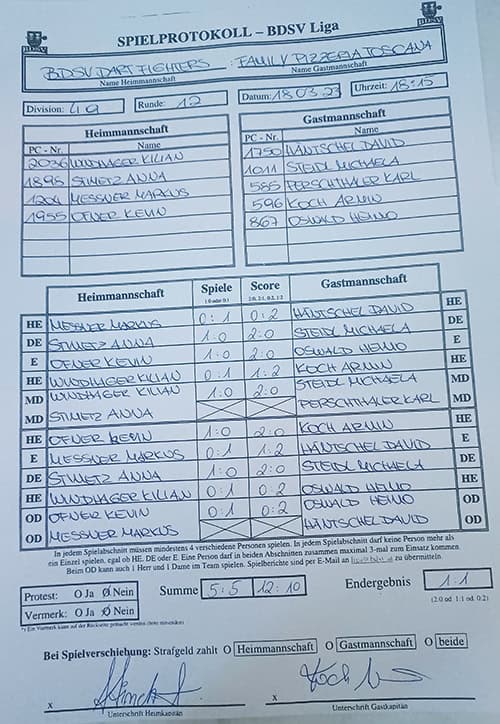 BDSV
SPIELPROTOKOLL – BDSV Liga
BDSV
BDSV DART FIGHTERS : FAMILY PIZZERIA TOSCANA
Name Heimmannschaft Name Gastmannschaft
Division: Liga Runde: 12 Datum: 18 03. 23 Uhrzeit: 18:15
Heimmannschaft
PC - Nr. Name
2036 WINDHAGER KILIAN
1895 STIMETZ ANNA
1204 MESSNER MARKUS
1955 OFNER KEVIN
Gastmannschaft
PC - Nr. Name
1750 HÄNTSCHEL DAVID
1011 STEIDL MICHAELA
585 PERSCHTHALER KARL
596 KOCH ARMIN
867 OSWALD HEIMO
Heimmannschaft Spiele Score Gastmannschaft
1:0 oder 0:1 2:0, 2:1, 0:2, 1:2
HE MESSNER MARKUS 0:1 0:2 HÄNTSCHEL DAVID HE
DE STIMETZ ANNA 1:0 2:0 STEIDL MICHAELA DE
E OFNER KEVIN 1:0 2:0 OSWALD HEIMO E
HE WINDHAGER KILIAN 0:1 1:2 KOCH ARMIN HE
MD WINDHAGER KILIAN 1:0 2:0 STEIDL MICHAELA MD
MD STIMETZ ANNA PERSCHTHALER KARL MD
HE OFNER KEVIN 1:0 2:0 KOCH ARMIN HE
E MESSNER MARKUS 0:1 1:2 HÄNTSCHEL DAVID E
DE STIMETZ ANNA 1:0 2:0 STEIDL MICHAELA DE
HE WINDHAGER KILIAN 0:1 0:2 OSWALD HEIMO HE
OD OFNER KEVIN 0:1 0:2 OSWALD HEIMO OD
OD MESSNER MARKUS HÄNTSCHEL DAVID OD
In jedem Spielabschnitt müssen mindestens 4 verschiedene Personen spielen. In jedem Spielabschnitt darf keine Person mehr als
ein Einzel spielen, egal ob HE, DE oder E. Eine Person darf in beiden Abschnitten zusammen maximal 3-mal zum Einsatz kommen
Beim OD kann auch 1 Herr und 1 Dame im Team spielen. Spielberichte sind per E-Mail an zu übermitteln.
Protest: O Ja O Nein Summe 5:5 12:10 Endergebnis 1:1
Vermerk: O Ja O Nein (2:0 od. 1:1 od. 0:2)
*) Ein Vermerk kann auf der Rückseite gemacht werden
Bei Spielverschiebung: Strafgeld zahlt O Heimmannschaft O Gastmannschaft O beide
x x
Unterschrift Heimkapitän Unterschrift Gastkapitän